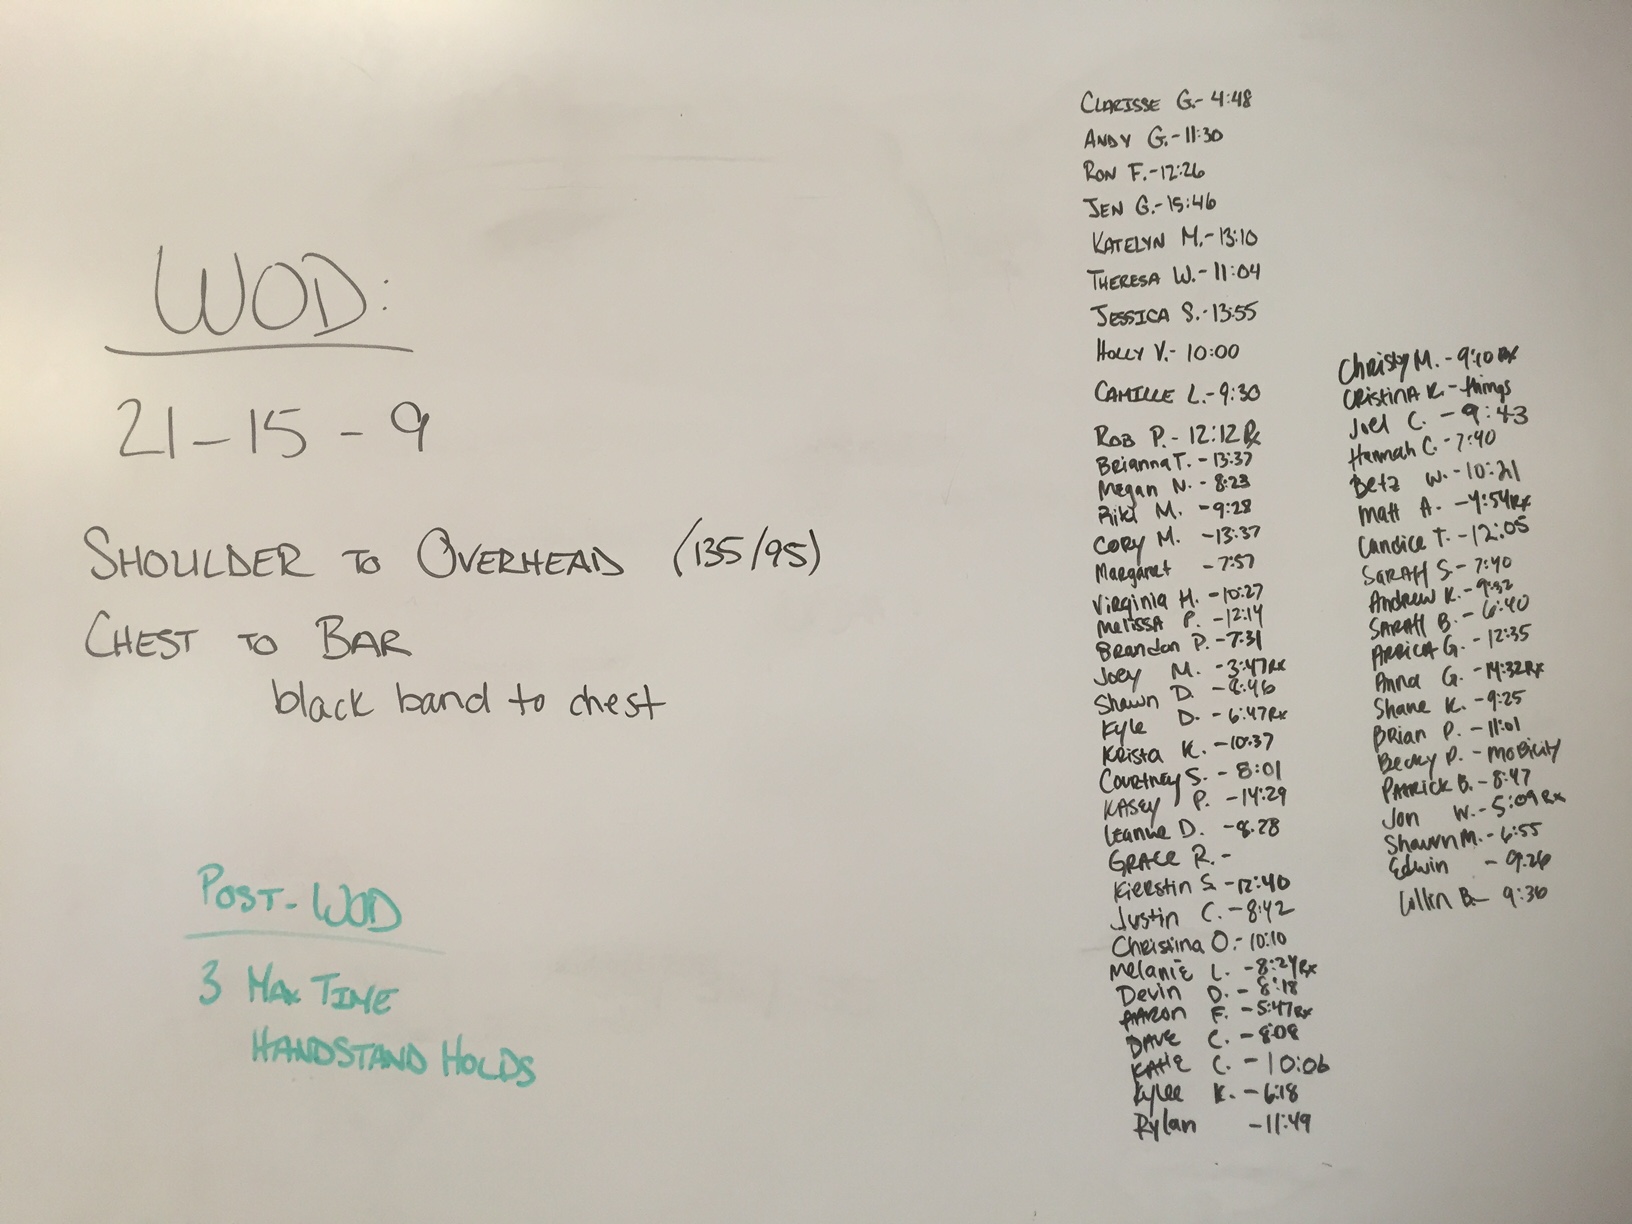 WOD:
21-15-9
SHOULDER TO OVERHEAD (135/95)
CHEST TO BAR
black band to chest
POST-WOD
3 MAX TIME
HANDSTAND HOLDS
CLARISSE G.- 4:48
ANDY G.-11:30
RON F.-12:26
JEN G.-15:46
KATELYN M.-13:10
THERESA W.-11:04
JESSICA S.-13:55
HOLLY V.- 10:00
CAMILLE L.-9:30
ROB P. - 12:12 Rx
Brianna T. - 13:37
Megan N. - 8:23
Riki M. - 9:28
CORY M. -13:37
Margaret - 7:57
Virginia H. -10:27
MelissA P. -12:14
Brandon P. -7:31
Joey M. -3:47Rx
Shawn D. - 8:46
Kyle D. - 6:47Rx
Krista K. -10:37
COURTNEY S. - 8:01
KASEY P. -14:29
Leanne D. -8:28
GRACE R. -
Kierstin S. -12:40
Justin C. -8:42
Christina O.- 10:10
MelaniE L. -8:24Rx
Devin D. - 8:18
AARON F. -5:47Rx
DAVE C. -8:08
KATIE C. -10:06
Kylee K. -6:18
Rylan -11:49
Christy M. - 9:10 Rx
CRistinA K. - things
Joel C. - 9:43
Hannah C. - 7:40
Betz W. - 10:21
Matt A. -4:54Rx
Candice T. -12:05
SARAH S. - 7:40
Andrew K. - 9:32
SARAH B. - 6:40
G. - 12:35
Anna G. -14:32Rx
Shane K. -9:25
BRian P. -11:01
Becky P. - MoBility
PATRICK B. - 8:47
Jon W. - 5:09 Rx
Shawn M. - 6:55
Edwin - 9:26
B.- 9:36